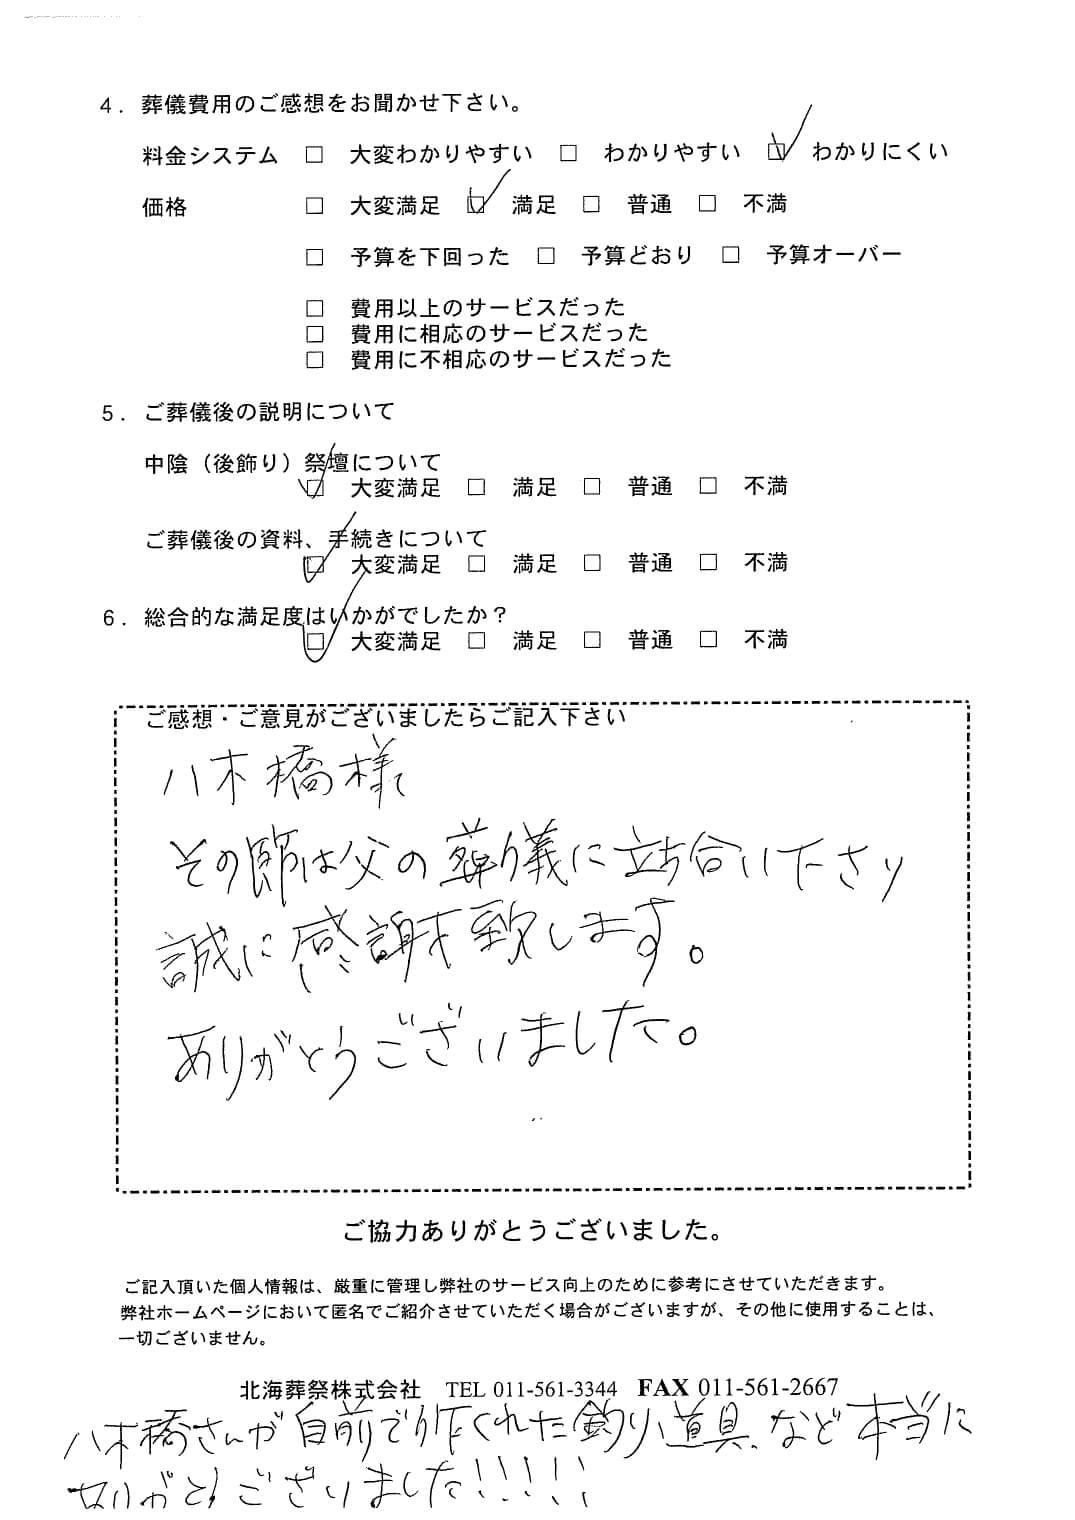 4．葬儀費用のご感想をお聞かせ下さい。
料金システム □ 大変わかりやすい □ わかりやすい ☑ わかりにくい
価格 □ 大変満足 ☑ 満足 □ 普通 □ 不満
□ 予算を下回った □ 予算どおり □ 予算オーバー
□ 費用以上のサービスだった
□ 費用に相応のサービスだった
□ 費用に不相応のサービスだった
5．ご葬儀後の説明について
中陰（後飾り）祭壇について
☑ 大変満足 □ 満足 □ 普通 □ 不満
ご葬儀後の資料、手続きについて
☑ 大変満足 □ 満足 □ 普通 □ 不満
6．総合的な満足度はいかがでしたか？
☑ 大変満足 □ 満足 □ 普通 □ 不満
ご感想・ご意見がございましたらご記入下さい
八木橋様
その節は父の葬儀に立ち合い下さり
誠に感謝致します。
ありがとうございました。
ご協力ありがとうございました。
ご記入頂いた個人情報は、厳重に管理し弊社のサービス向上のために参考にさせていただきます。
弊社ホームページにおいて匿名でご紹介させていただく場合がございますが、その他に使用することは、
一切ございません。
北海葬祭株式会社 TEL 011-561-3344 FAX 011-561-2667
八木橋さんが自前で作くれた釣り道具、など本当に
ありがとうございました!!!!!